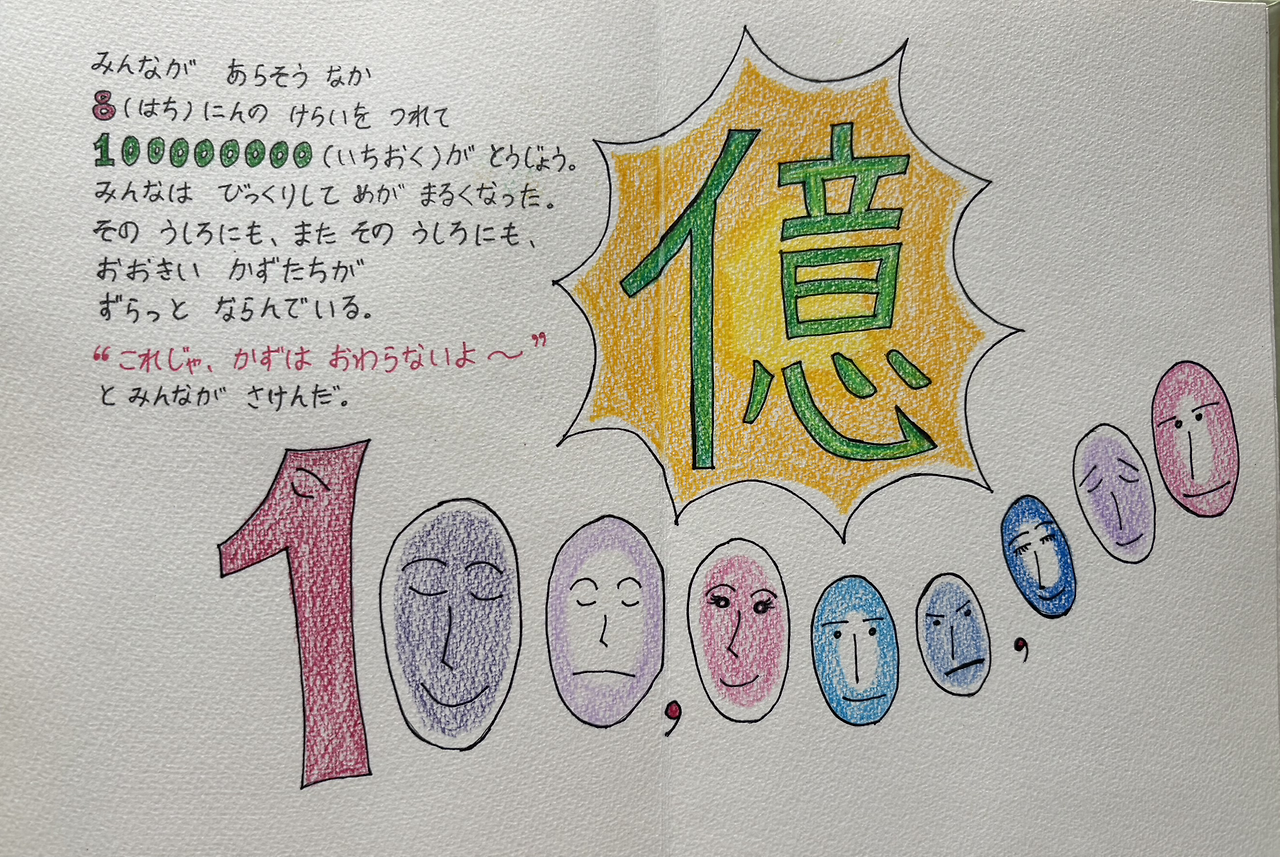 みんなが あらそう なか
8(はち)にんの けらいを つれて
100000000(いちおく)が とうじょう。
みんなは びっくりして めが まるくなった。
その うしろにも、また その うしろにも、
おおきい かずたちが
ずらっと ならんでいる。
“これじゃ、かずは おわらないよ〜”
と みんなが さけんだ。
億
100,000,000